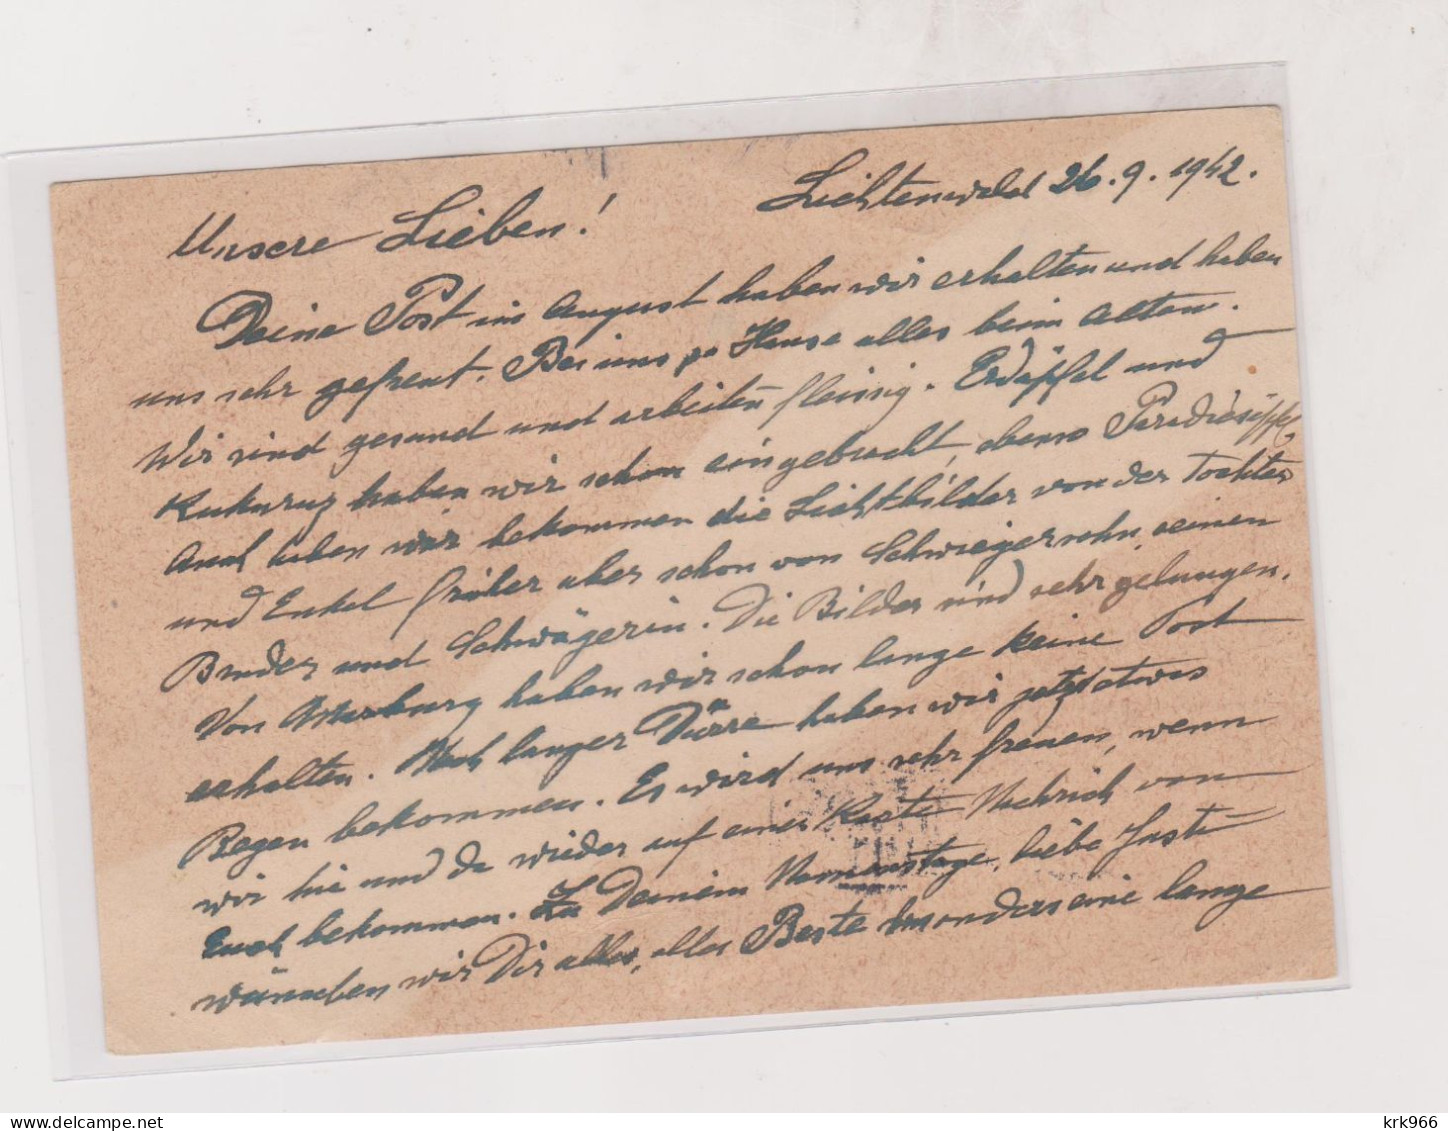 Lichtenwald 26.9.1942.
Unsere Lieben!
Deine Post im August haben wir erhalten und haben
uns sehr gefreut. Bei uns zu Hause alles beim Alten.
Wir sind gesund und arbeiten fleisig. Erdäpfel und
Kukuruz haben wir schon eingebracht, ebenso Paradiesäpfel,
Auch haben wir bekommen die Lichtbilder von der Tochter
und Enkel früher aber schon von Schwiegersohn, seinen
Bruder und Schwägerin. Die Bilder sind sehr gelungen.
Von Marburg haben wir schon lange keine Post
erhalten. Nach langer Dürre haben wir jetzt etwas
Regen bekommen. Es wird uns sehr freuen, wenn
wir hie und da wieder auf einer Karte Nachricht von
Euch bekommen. Zu Deinem Namenstage, liebe Justi
wünschen wir Dir alles, alles Beste besonders eine lange
krk966